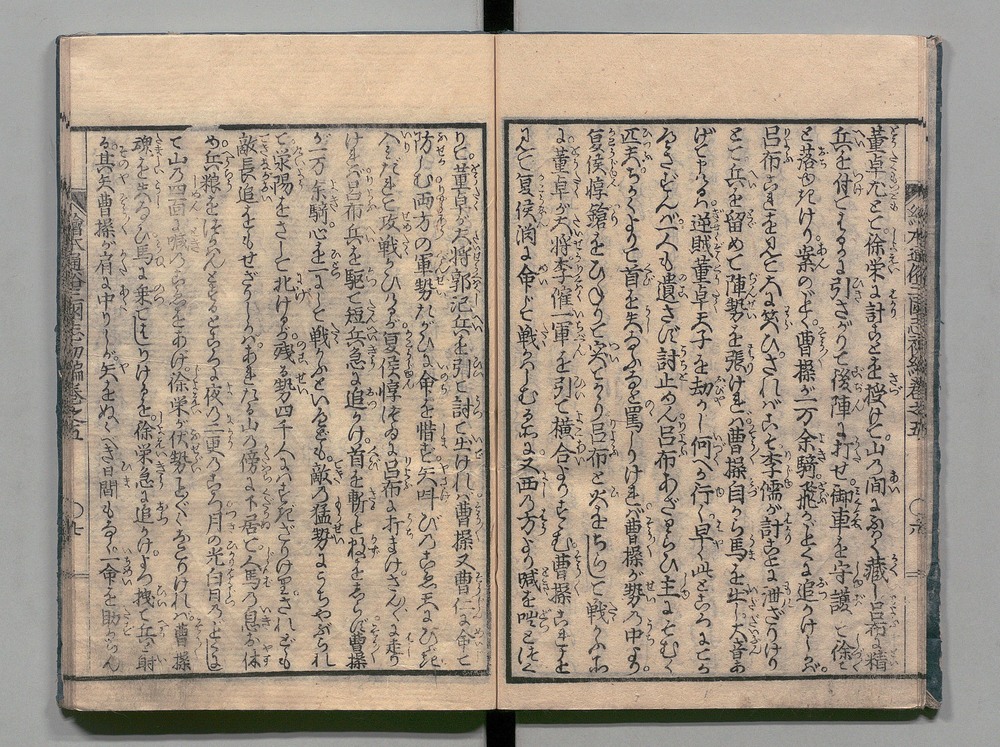 董卓なとと徐栄に計ごとを授けて山の間にふかく藏し呂布に精
兵を付てはるかに引さがりて後陣に打せ御車を守護して徐々
と落ゆきけり案のごとく曹操が一万余騎飛がごとくに追かけしかバ
呂布これを見て大に笑ひされバこそ李儒が計ごとに泄ざりけり
とて兵を留めて陣勢を張けれバ曹操自から馬を出し大音あ
げて申けるハ逆賊董卓天子を劫かし何へ行く早此ところにて
一人も遺さず討止めん呂布あざわらひ主にそむく
匹夫ちかくよりて首を失なふなと罵しりけれバ曹操が勢の中より
夏侯惇鎗をひねりて突とかゝり呂布と火をちらして戦かふ
に董卓が大将李傕一軍を引て横合よりすゝむ曹操これを
見て夏侯淵に命じて戦かハしむる所に又西の方より喊を咄とつくり
りて董卓が大将郭汜兵を引て討て出けれバ曹操又曹仁に命じて
防がしむ両方の軍勢たがひに命を惜まず矢叫びのこゑ天にひゞき
入みだれて攻戦ひけるが夏侯惇つゐに呂布に打まけさん〴〵に走り
けれバ呂布兵を駆て短兵急に追かけ首を斬こと数をしらず曹操
が一万余騎心を一にして戦かふといへども敵の猛勢にうちやぶられ
て滎陽をさして北けるが残る勢四千人にすぎざりけりされども
敵長追をもせざりしかバあれたる山の傍に下居て人馬の息を休
め兵粮をつかハんとするところに夜の二更のころ月の光白日のごとくに
て山の四面に喊のこゑをあげ徐栄が伏勢こと〴〵くおこりけれバ曹操
魂を失なひ馬に乗てはしりけるを徐栄急に追かけよつ拽て兵ど射
る其矢曹操が肩に中りしが矢をぬくべき日間もなく命を助からん
繪本通俗三國志初編巻之五
繪本通俗三國志初編巻之五
〇九